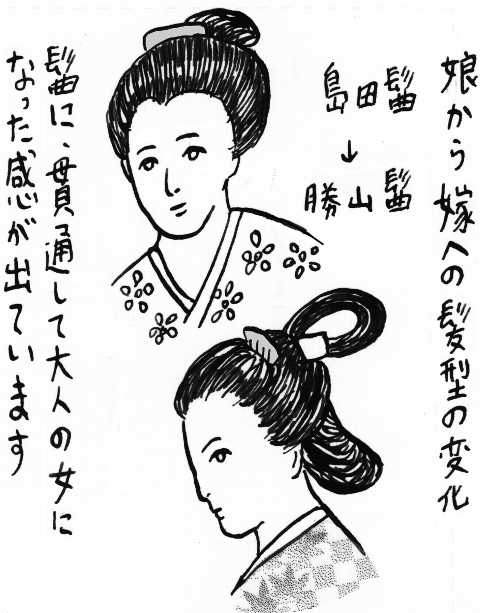 娘から嫁への髪型の変化
島田髷
↓
勝山髷
髷に、貫通して大人の女に
なった感が出ています